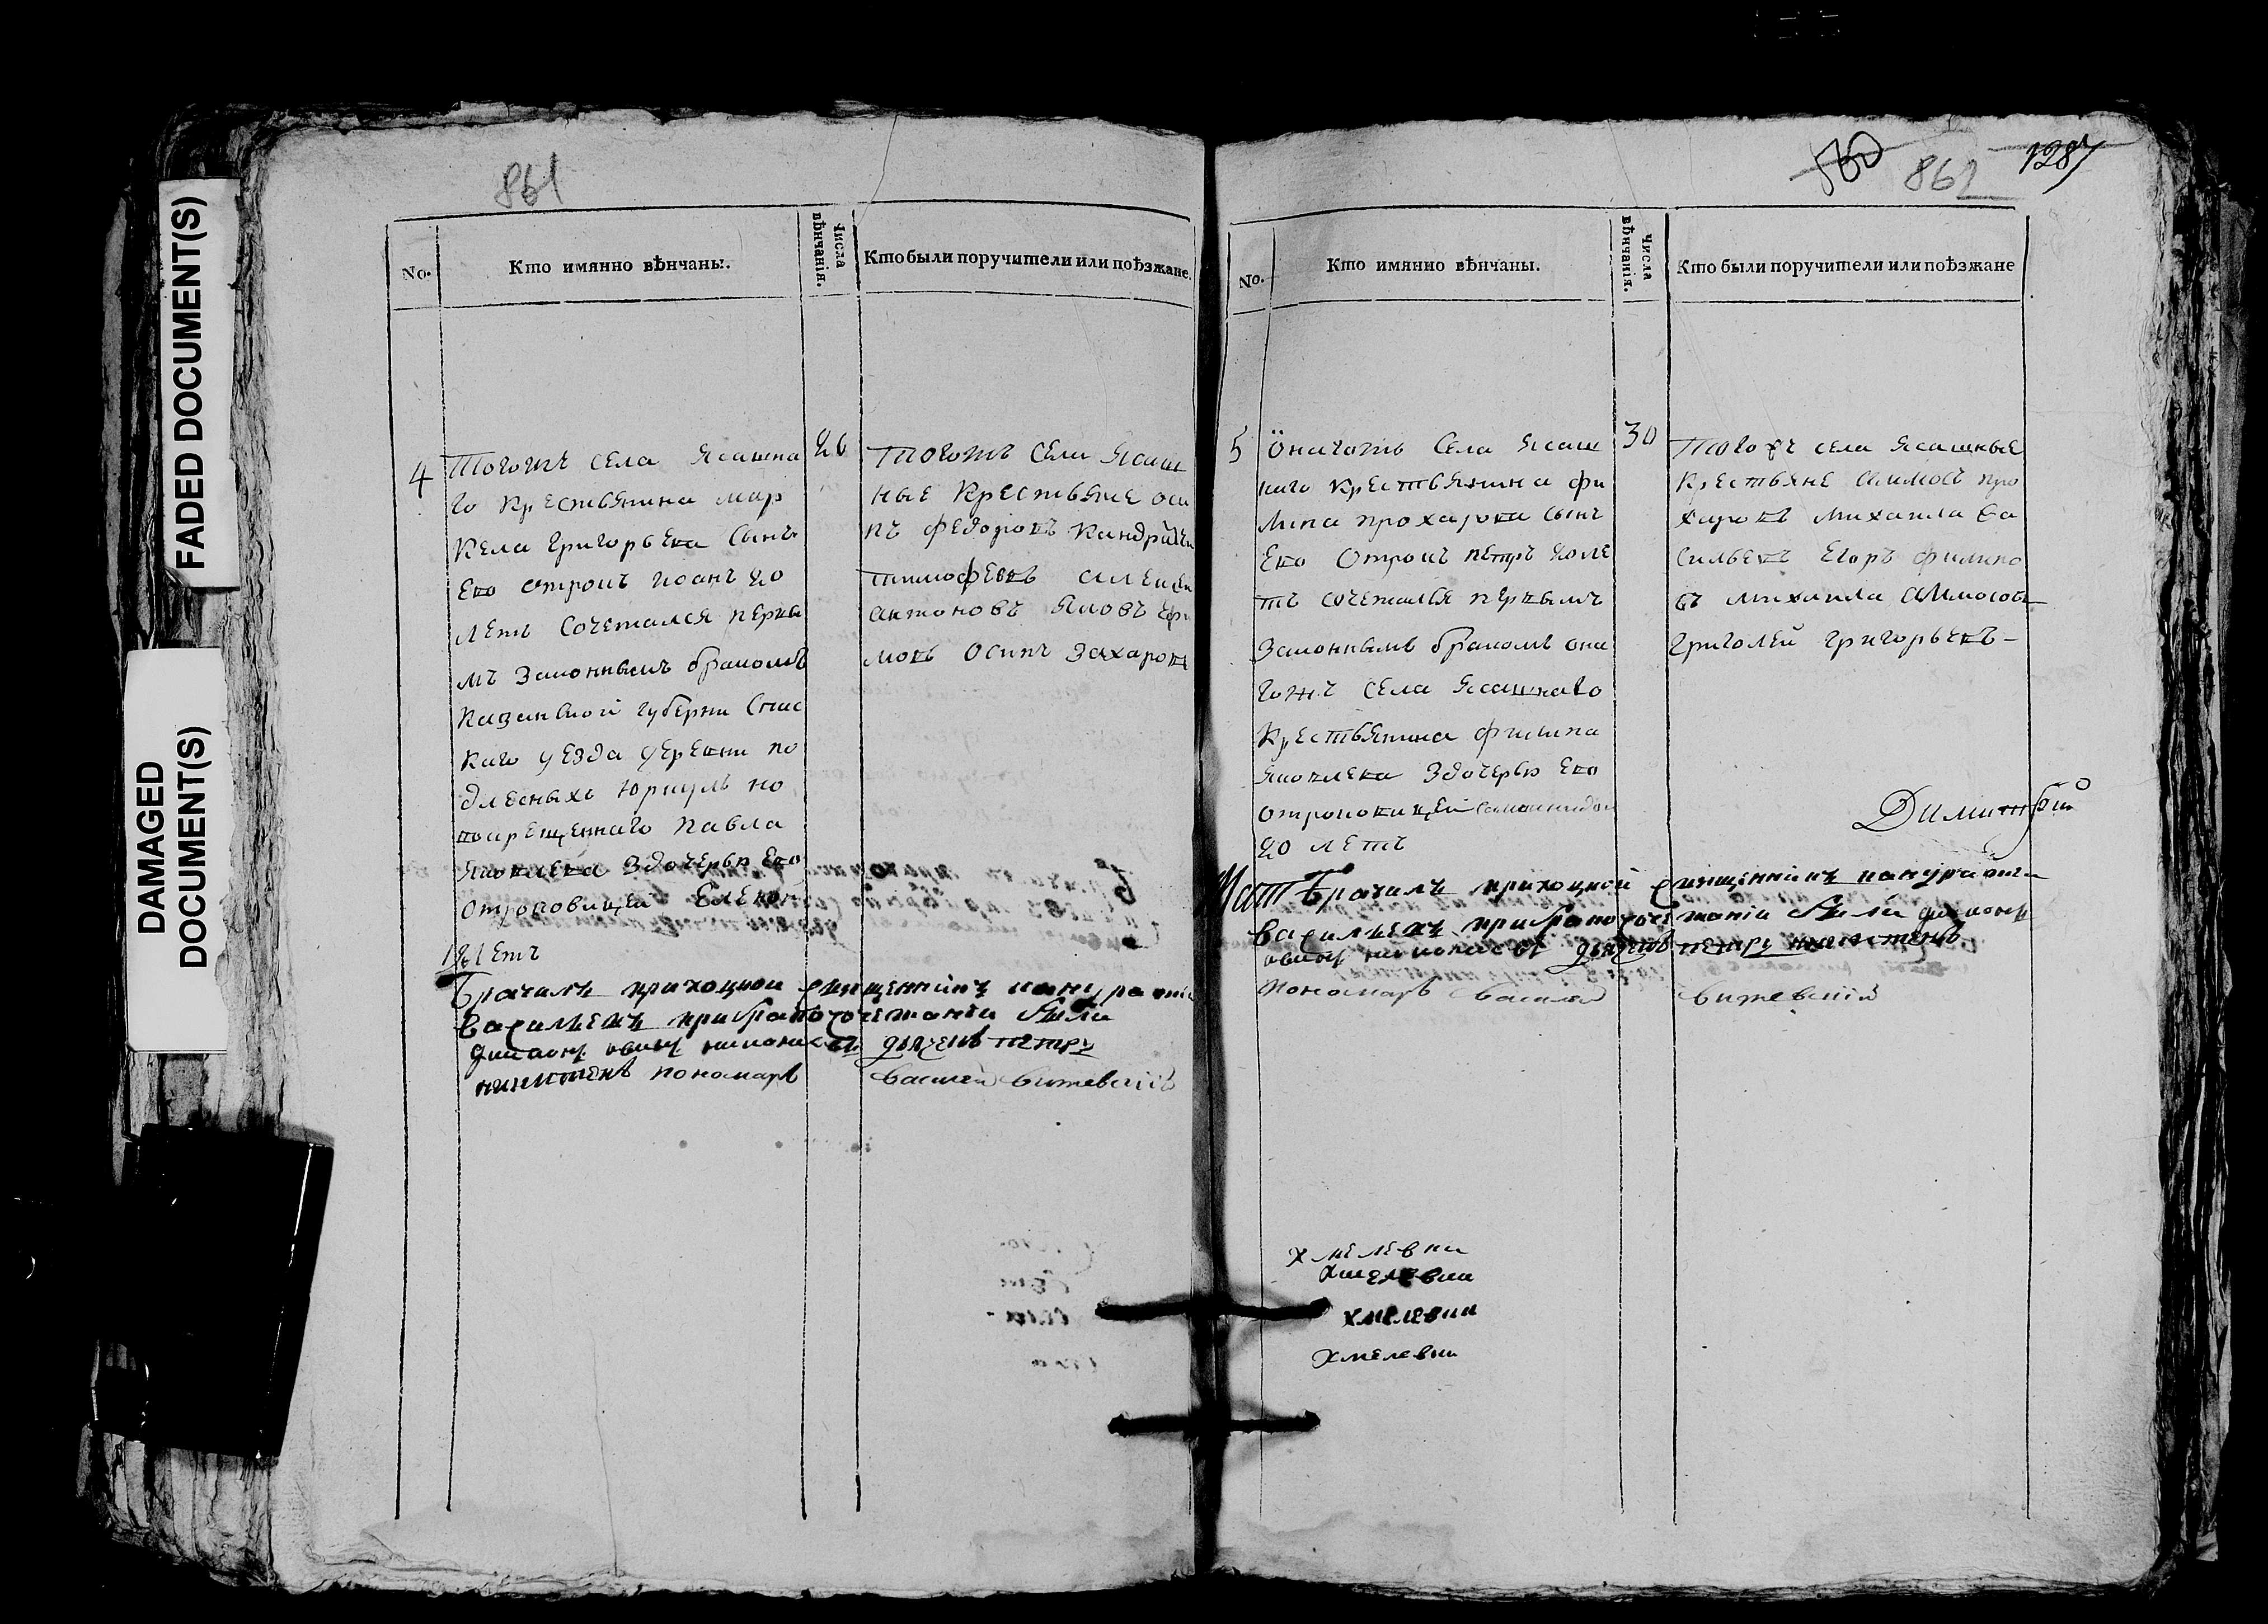 FADED DOCUMENT(S)
DAMAGED
DOCUMENT(S)
861
No.
Кто имянно вѣнчаны.
Числа
вѣнчанія.
Кто были поручители или поѣзжане.
4
Тогожъ села Ясашна
го крестьянина мар
кела григорьева сынъ
ево отрокъ иоанъ 20
летъ сочетался первы
мъ законнымъ бракомъ
казанской губерни спас
каго уезда деревни по
длесныхъ юркуль но
вокрещеннаго павла
яковлева здочерью ево
отроковицей Еленой
летъ
26
тогожъ села Ясаш
ные крестьяне оси
пъ федоровъ
тимофеевъ
антоновъ
осипъ захаровъ
Брачилъ приходцкой священникъ
василиевъ при бракосочетании были
дьячекъ петръ
пономарь василей витевский
530
862
1287
No.
Кто имянно вѣнчаны.
Числа
вѣнчанія.
Кто были поручители или поѣзжане
5
Онагожъ села Ясаш
наго крестьянина фи
липа прохарова сынъ
ево отрокъ петръ 20 ле
тъ сочетался первымъ
законнымъ бракомъ она
гожъ села Ясашнаго
крестьянина филипа
яковлева здочерью ево
отроковицей
20 летъ
30
тогожъ села ясашные
крестьяне аммосъ про
харовъ михаила ва
сильевъ егоръ филипо
въ михаила аммосовъ
григорей григорьевъ
Димитрий
Брачилъ приходцкой священникъ
василиевъ при бракосочетании были
дьячекъ петръ
пономарь василей витевский
хмелевки
хмелевки
хмелевки
хмелевки